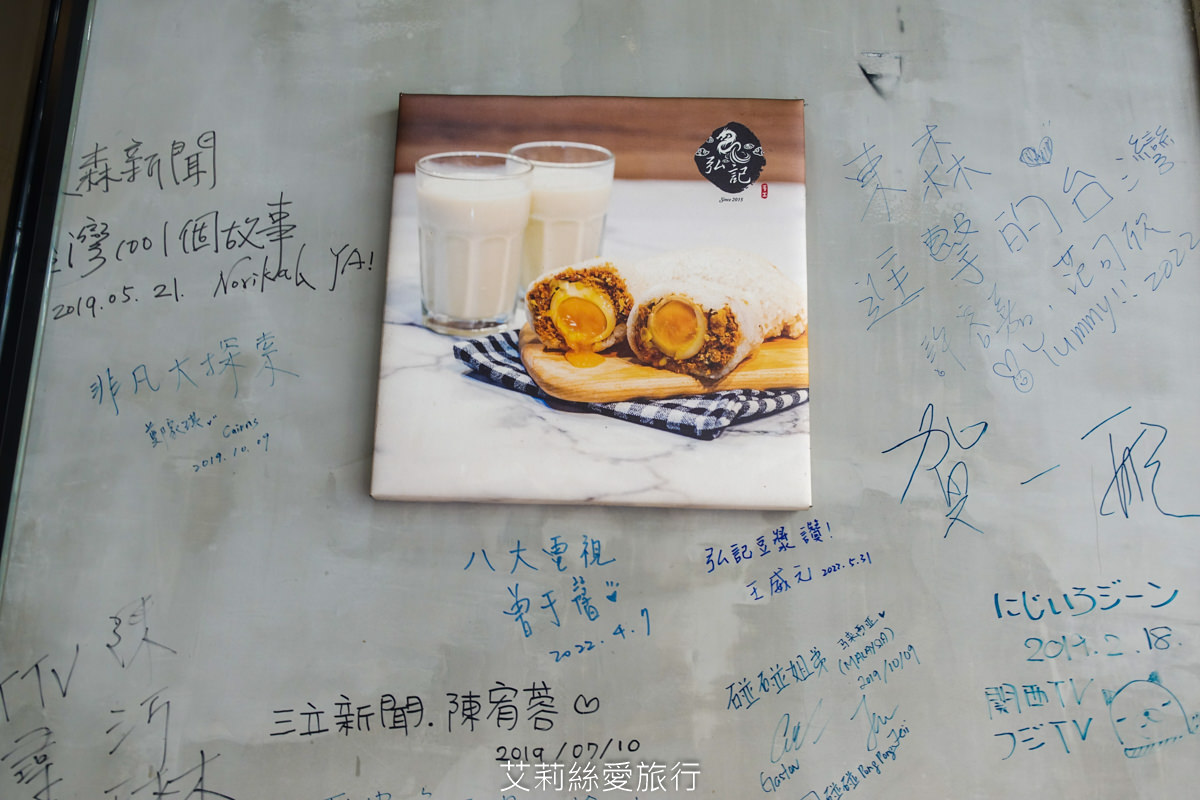 森新聞
灣1001個故事
2019.05.21. Norikah YA!
非凡大探索
Cairns
2019.10.09
弘記
Since 2015
東森
進擊的台灣
Yummy!! 2022
賀一航
八大電視
曾于馨
2022.4.7
弘記豆漿讚!
王威元 2022.5.31
にじいろジーン
2017.2.18.
関西TV
フジTV
碰碰姐弟
馬來西亞
(MALAYSIA)
2019/10/09
Gaston
碰碰 Pong Pong Jeii
TTV
陳
三立新聞.陳宥蓉
2019/07/10
艾莉絲愛旅行